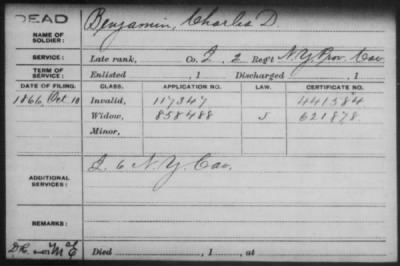 DEAD
NAME OF SOLDIER: Benjamin, Charles D.
SERVICE: Late rank, Co. I, 2 Reg't N.Y. Prov. Cav.
TERM OF SERVICE: Enlisted , 1 Discharged , 1
DATE OF FILING. CLASS. APPLICATION NO. LAW. CERTIFICATE NO.
1866, Oct 10 Invalid, 117347 441584
Widow, 858488 621878
Minor,
ADDITIONAL SERVICES: I. 6 N.Y. Cav.
REMARKS:
Died , 1 , at